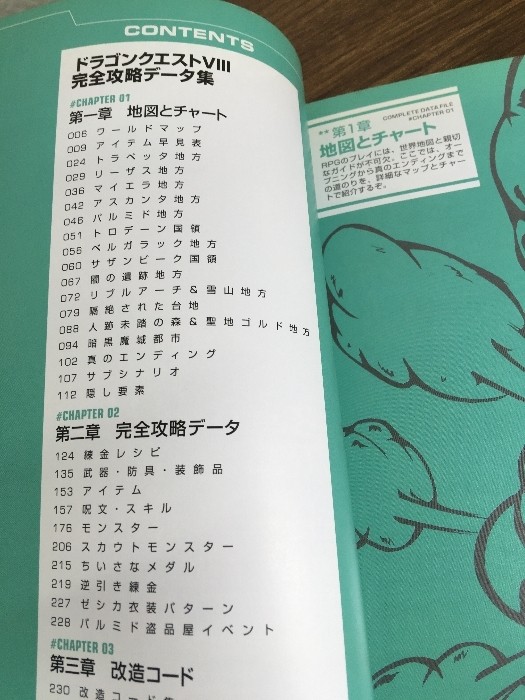 CONTENTS
ドラゴンクエストVIII
完全攻略データ集
#CHAPTER 01
第一章 地図とチャート
006 ワールドマップ
009 アイテム早見表
024 トラペッタ地方
029 リーザス地方
036 マイエラ地方
042 アスカンタ地方
046 パルミド地方
051 トロデーン国領
056 ベルガラック地方
060 サザンビーク国領
067 闇の遺跡地方
072 リブルアーチ&雪山地方
079 隔絶された台地
088 人跡未踏の森&聖地ゴルド地方
094 暗黒魔城都市
102 真のエンディング
107 サブシナリオ
112 隠し要素
#CHAPTER 02
第二章 完全攻略データ
124 練金レシピ
135 武器・防具・装飾品
153 アイテム
157 呪文・スキル
176 モンスター
206 スカウトモンスター
215 ちいさなメダル
219 逆引き練金
227 ゼシカ衣装パターン
228 パルミド盗品屋イベント
#CHAPTER 03
第三章 改造コード
230 改造コード集
COMPLETE DATA FILE
#CHAPTER 01
** 第1章
地図とチャート
RPGのプレイには、世界地図と親切
なガイドが不可欠。ここでは、オー
プニングから真のエンディングまで
の道のりを、詳細なマップとチャー
トで紹介するぞ。